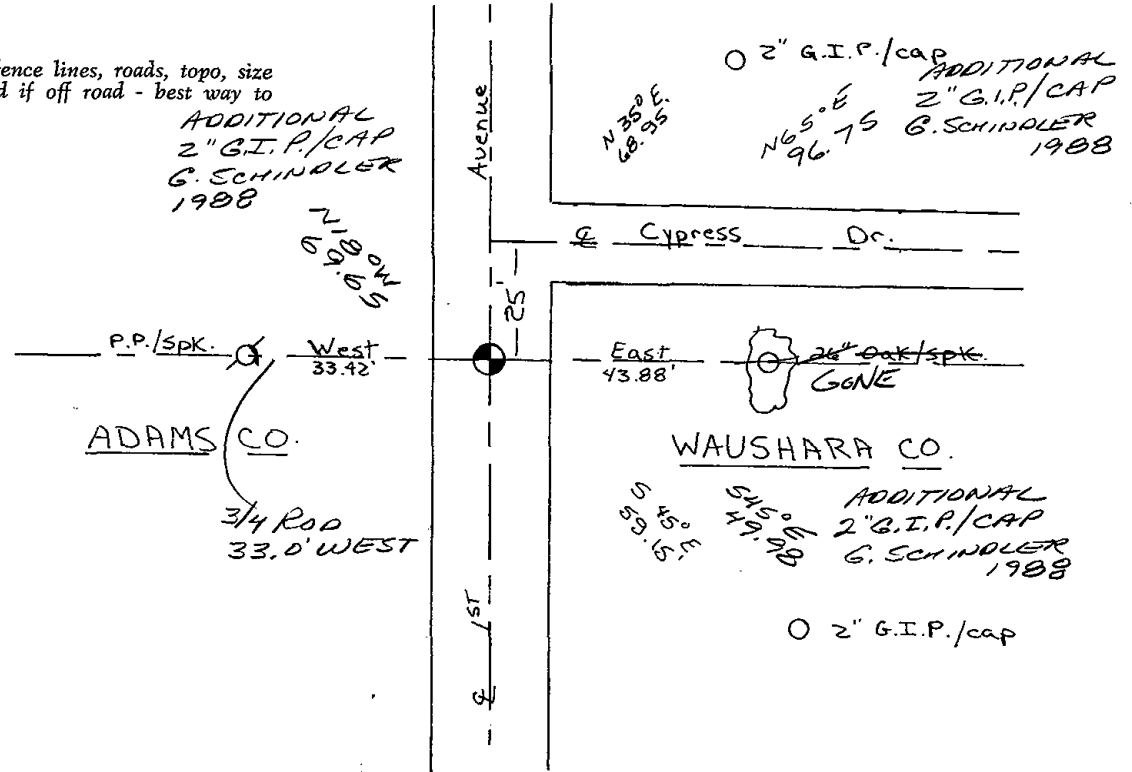 ence lines, roads, topo, size
d if off road - best way to
ADDITIONAL
2" G.I.P./CAP
G. SCHINDLER
1988
N18°W
69.65
Avenue
N 35° E.
68.95
N65°E
96.75
2" G.I.P./cap
ADDITIONAL
2" G.I.P./CAP
G. SCHINDLER
1988
℄ Cypress Dr.
25'
P.P./Spk.
West
33.42'
East
43.88'
26" Oak/spk.
GONE
ADAMS CO.
WAUSHARA CO.
3/4 ROD
33.0' WEST
S 45° E.
59.15'
S45°E
49.98
ADDITIONAL
2" G.I.P./CAP
G. SCHINDLER
1988
℄ 1ST
2" G.I.P./cap